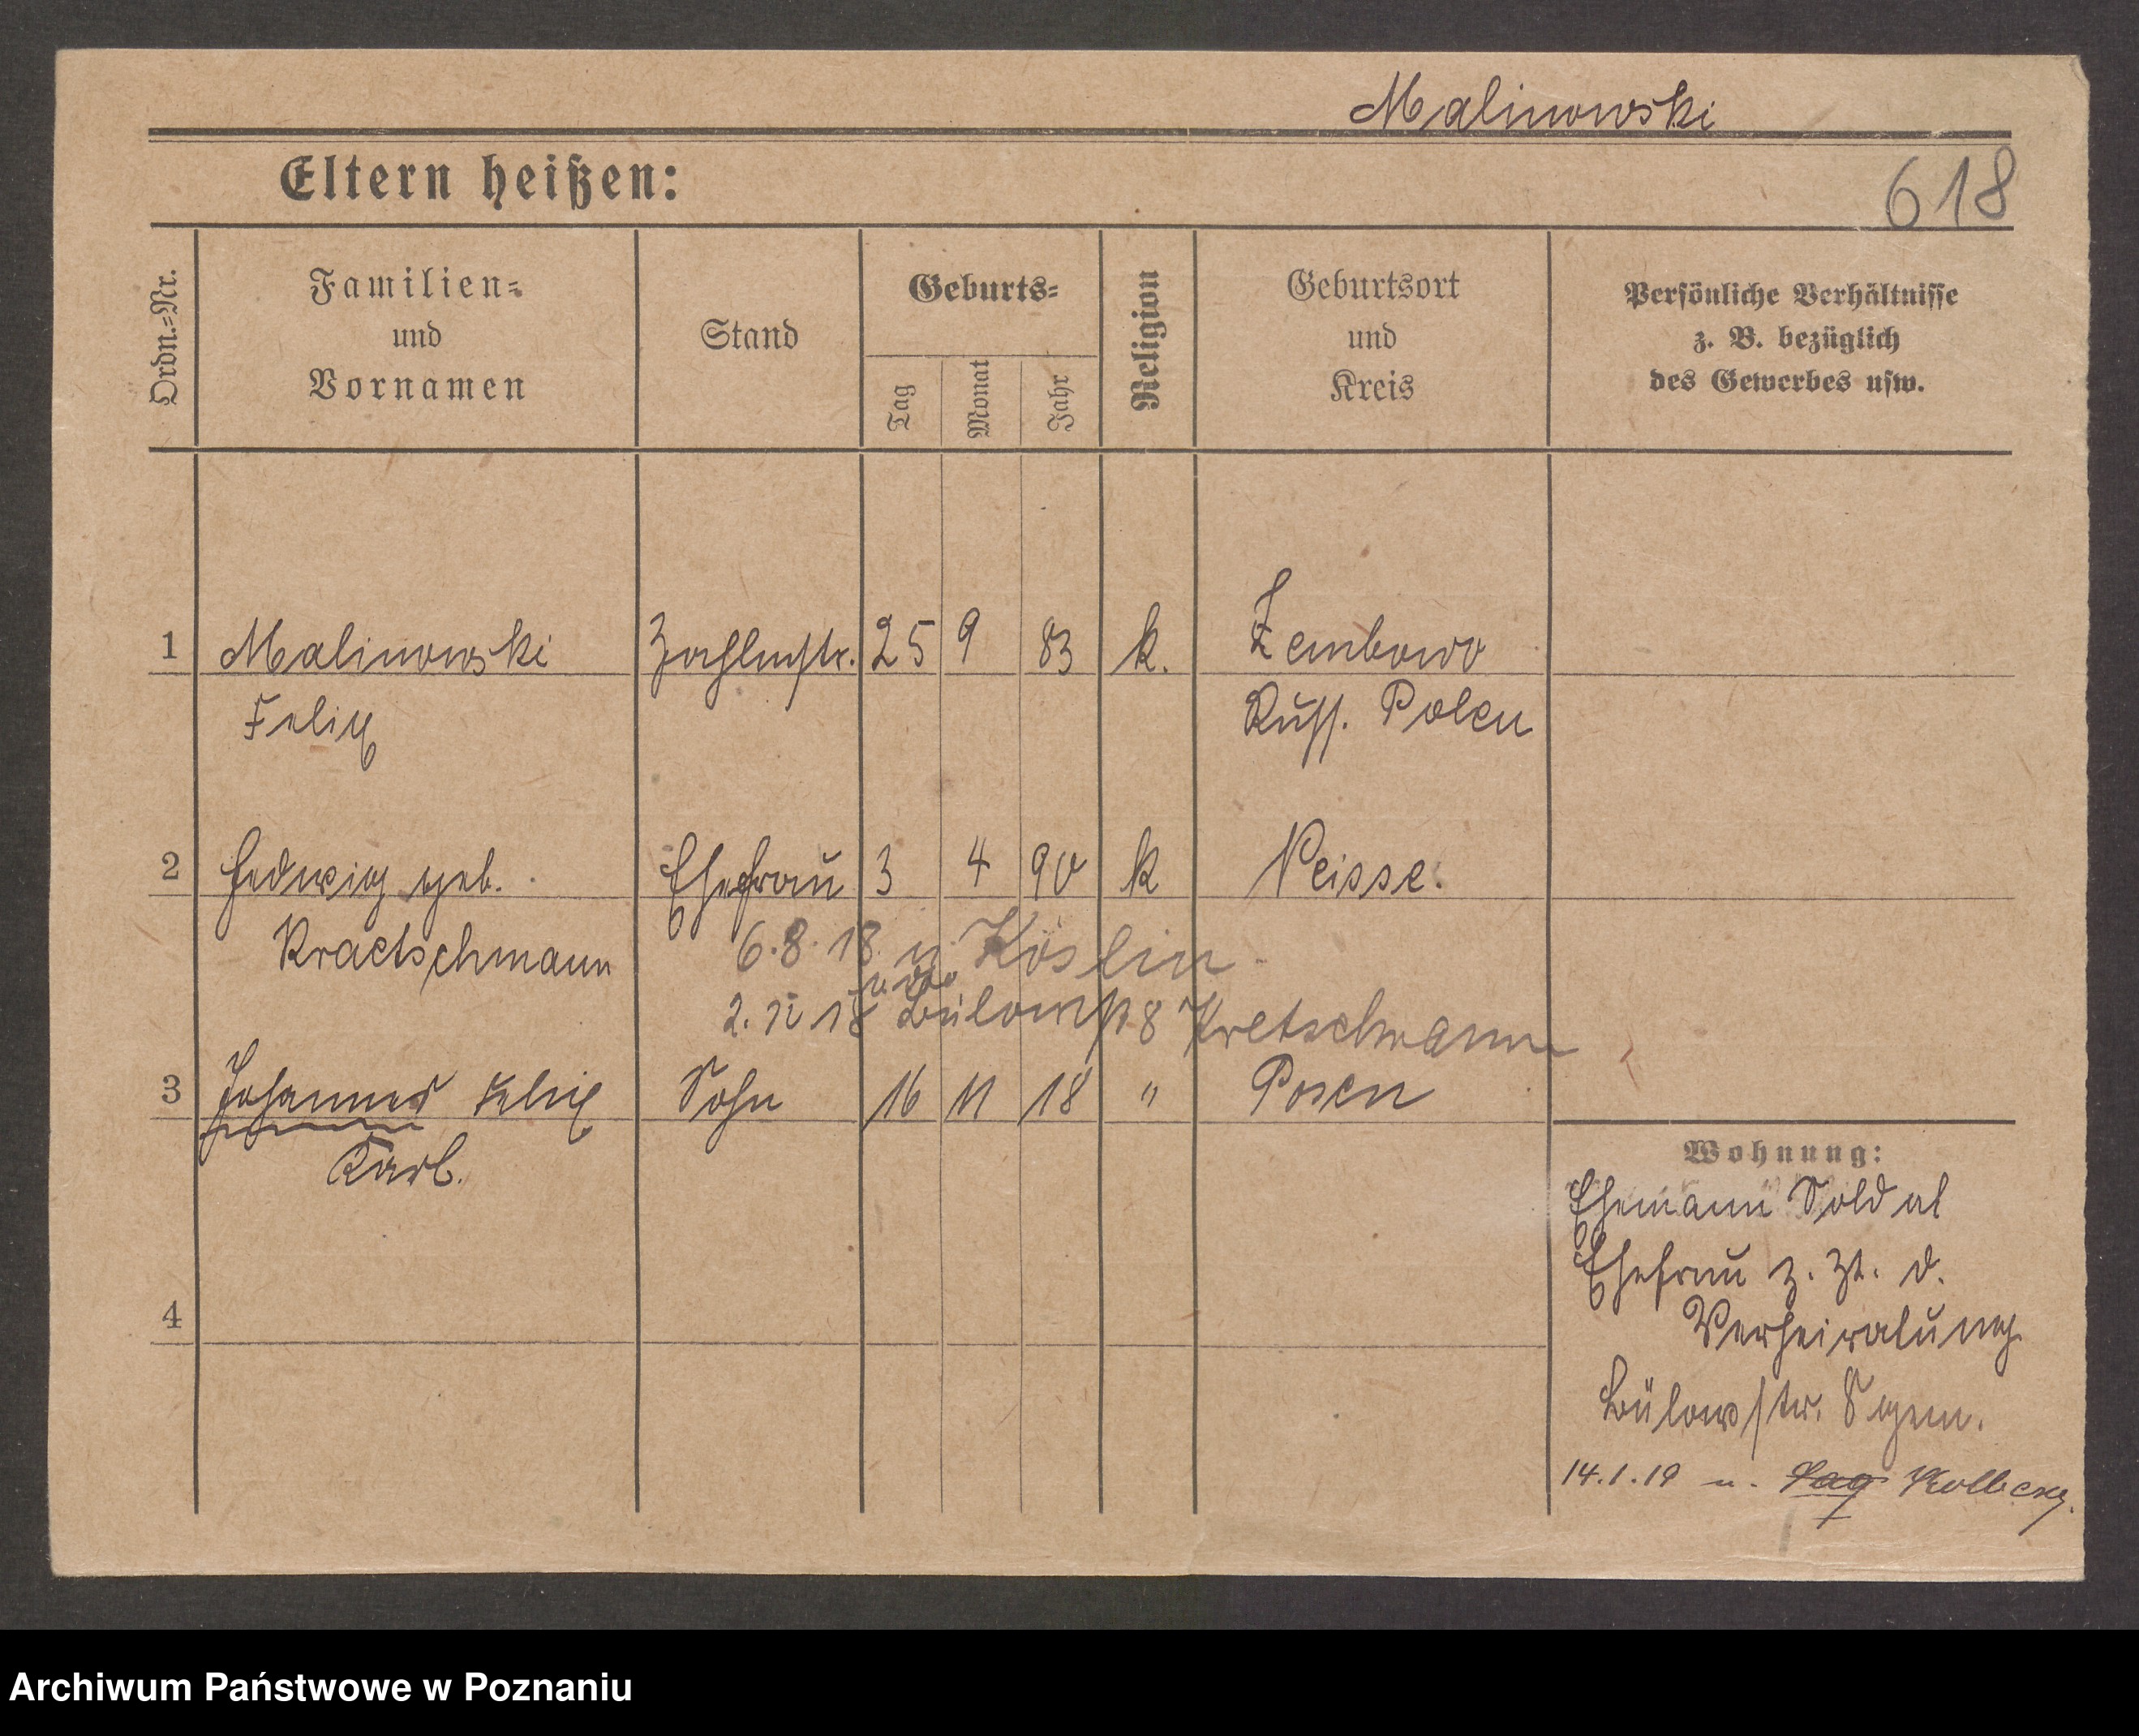 Malinowski
Eltern heißen:
618
Ordn.=Nr.
Familien=
und
Vornamen
Stand
Geburts=
Tag
Monat
Jahr
Religion
Geburtsort
und
Kreis
Persönliche Verhältnisse
z. B. bezüglich
des Gewerbes usw.
1 Malinowski Zahlmstr. 25 9 83 k. Zembowo
Felix Russ. Polen
2 Hedwig geb. Ehefrau 3 4 90 k Neisse.
Kraetschmann
6.8.18 n Köslin
2. 18 Bülowstr 8 Kretschmann
3 Johannes Felix Sohn 16 11 18 " Posen
Karl.
Wohnung:
Ehemann Soldat
Ehefrau z. Zt. d.
Verheiratung
4
Bülowstr. 8
14.1.19 n.
Archiwum Państwowe w Poznaniu